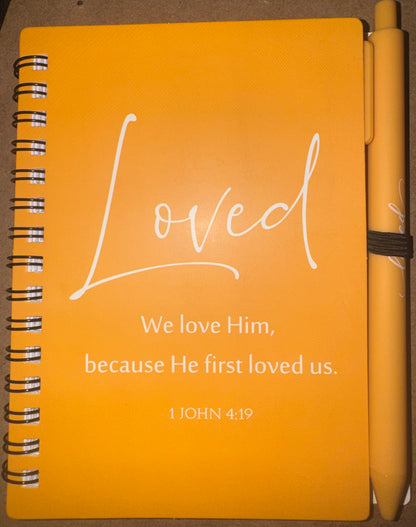 Loved
We love Him,
because He first loved us.
1 JOHN 4:19